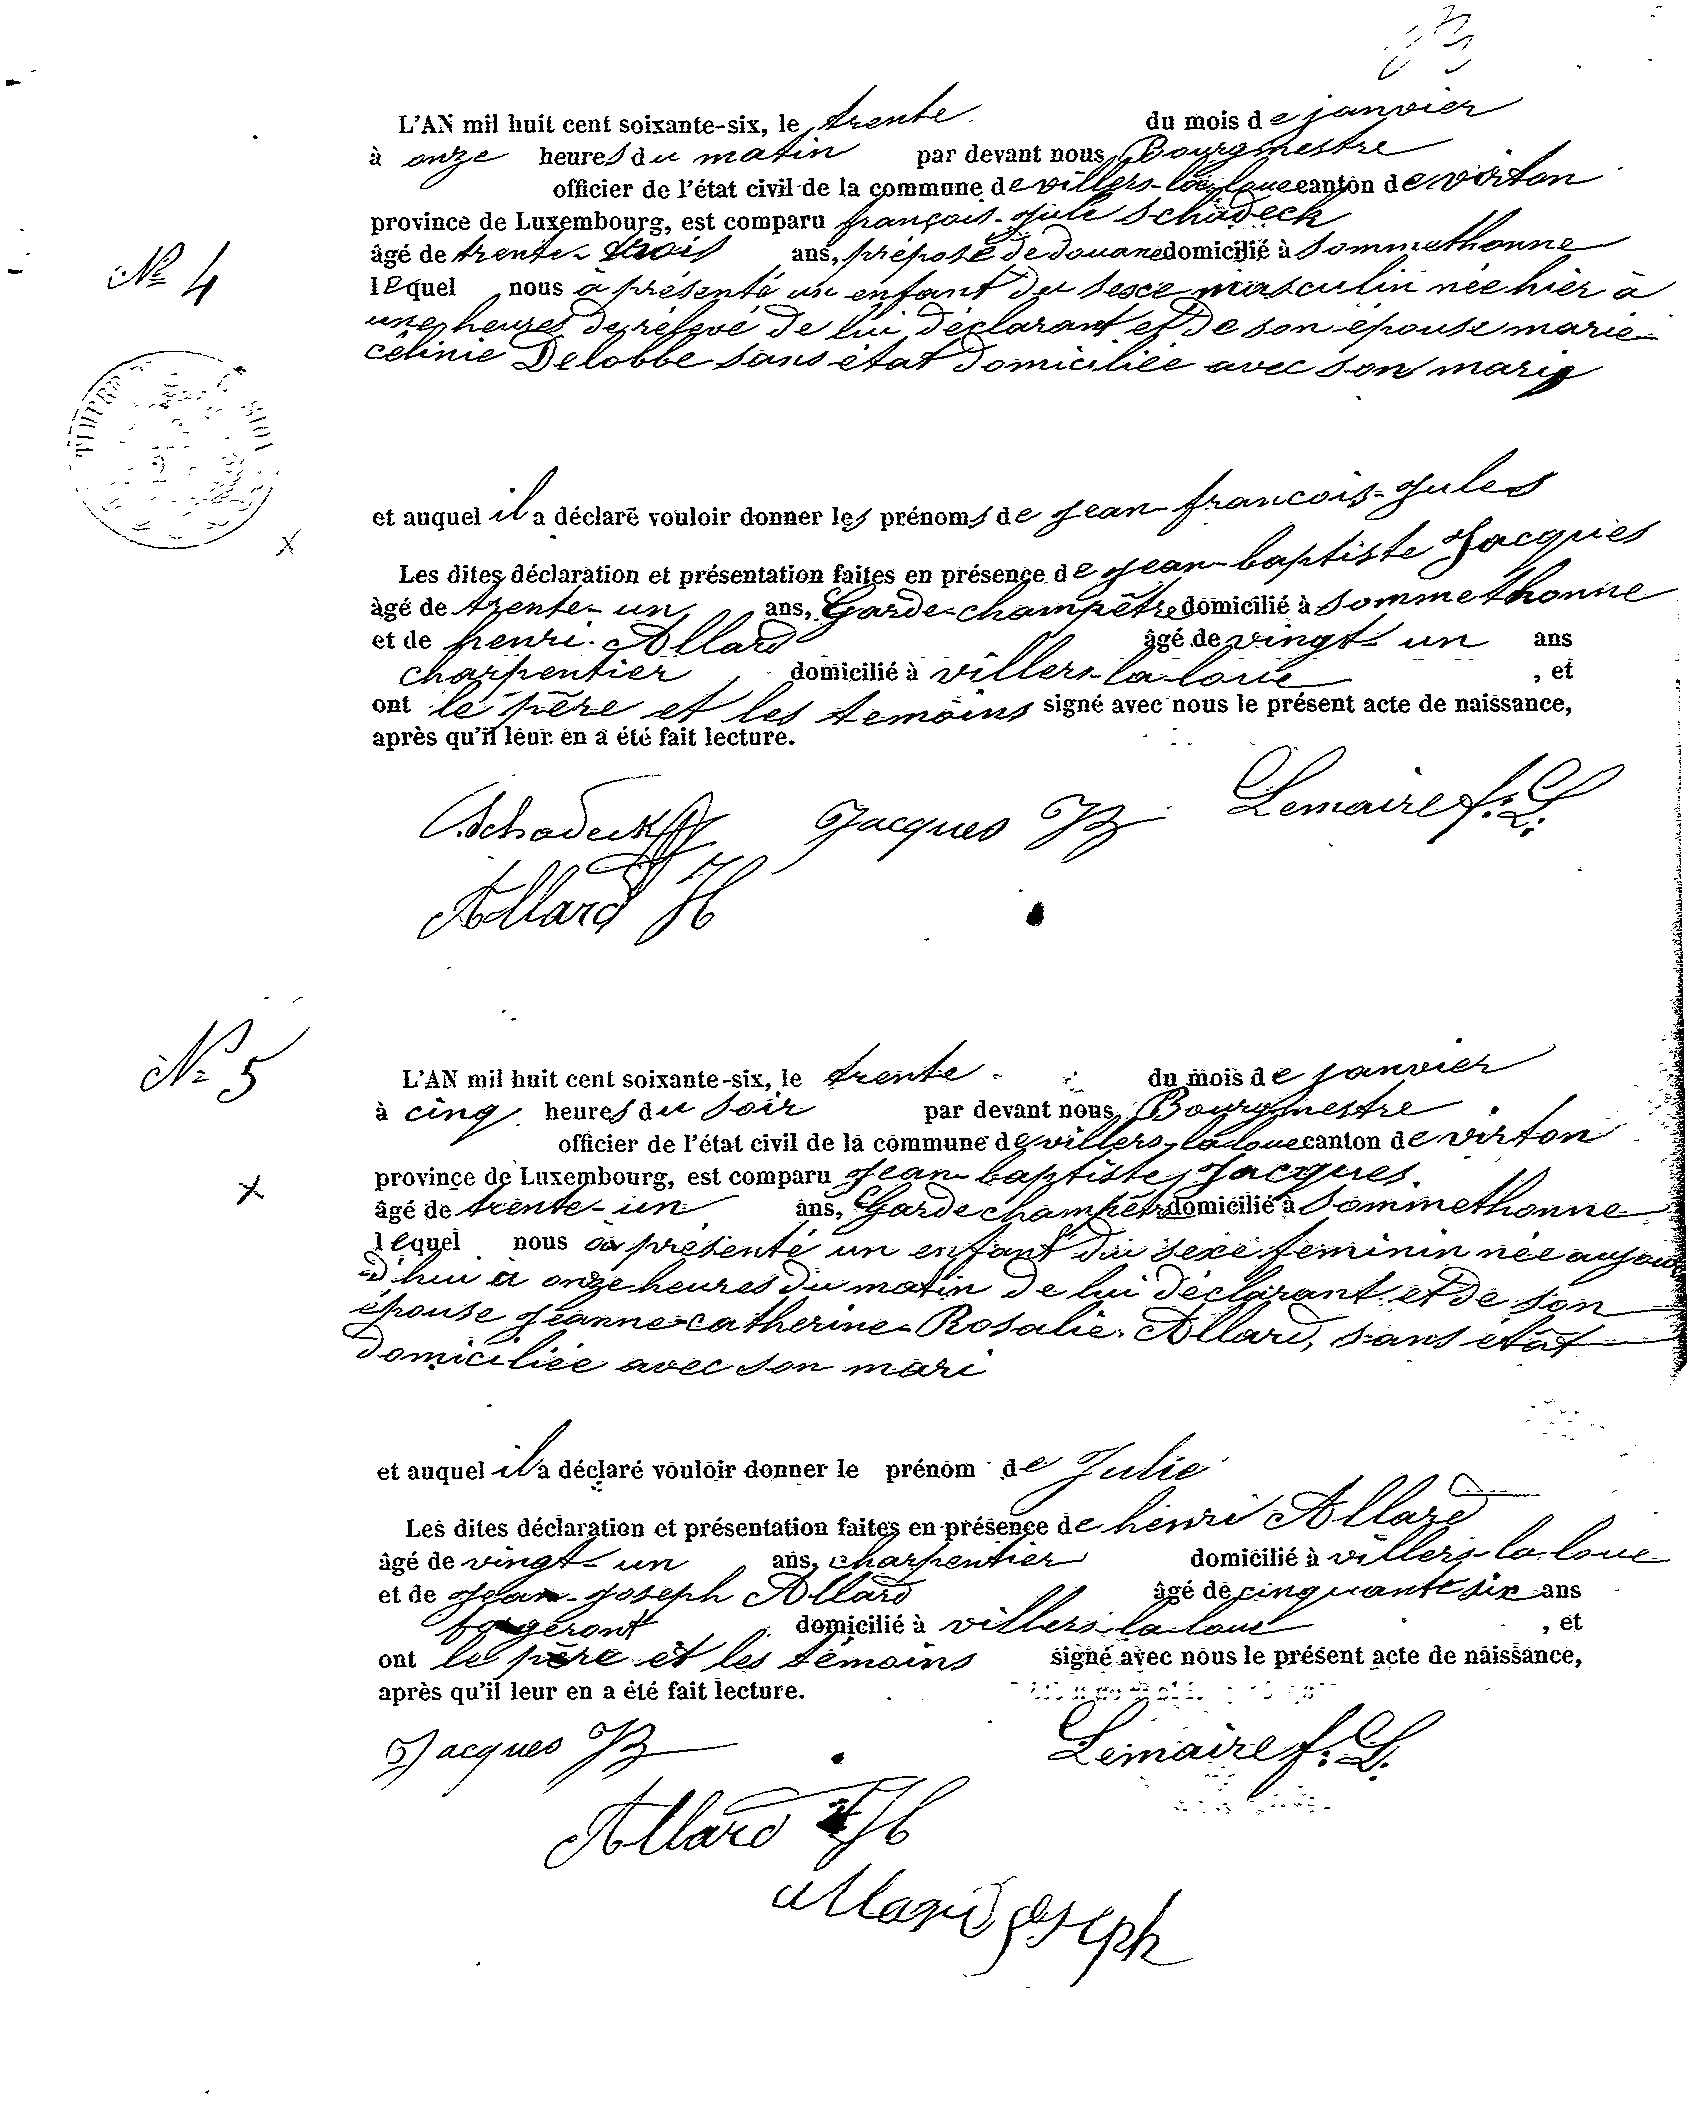 L'AN mil huit cent soixante-six, le trente du mois de janvier
à onze heures du matin par devant nous, Bourgmestre
officier de l'état civil de la commune de villers-la-loue canton de virton
province de Luxembourg, est comparu françois-jule Schadeck
N° 4
âgé de trente-trois ans, préposé de douane domicilié à Sommethonne
lequel nous à présenté un enfant du sexe masculin née hier à
une heures de rélevé de lui déclarant et de son épouse marie
célinie Delobbe sans état domiciliée avec son mari
et auquel il a déclaré vouloir donner les prénoms de jean-francois-jules
Les dites déclaration et présentation faites en présence de jean-baptiste Jacques
âgé de trente-un ans, Garde-champêtre domicilié à Sommethonne
et de henri Allard âgé de vingt-un ans
charpentier domicilié à villers-la-loue, et
ont le père et les temoins signé avec nous le présent acte de naissance,
après qu'il leur en a été fait lecture.
Schadeck Jacques JB Lemaire f. L.
Allard H
N° 5
L'AN mil huit cent soixante-six, le trente du mois de janvier
à cinq heures du soir par devant nous, Bourgmestre
officier de l'état civil de la commune de villers-la-loue canton de virton
province de Luxembourg, est comparu jean-baptiste, Jacques.
âgé de trente-un ans, Garde champêtre domicilié à Sommethonne
lequel nous a présenté un enfant du sexe feminin née aujour
d'hui à onze heures du matin de lui déclarant et de son
épouse jeanne-catherine-Rosalie Allard, sans état
domiciliée avec son mari
et auquel il a déclaré vouloir donner le prénom de Julie
Les dites déclaration et présentation faites en présence de henri Allard
âgé de vingt-un ans, charpentier domicilié à villers-la-loue
et de jean-Joseph Allard âgé de cinquante six ans
domicilié à villers-la-loue, et
ont le père et les témoins signé avec nous le présent acte de naissance,
après qu'il leur en a été fait lecture.
Jacques JB Lemaire f. L.
Allard H
allard joseph